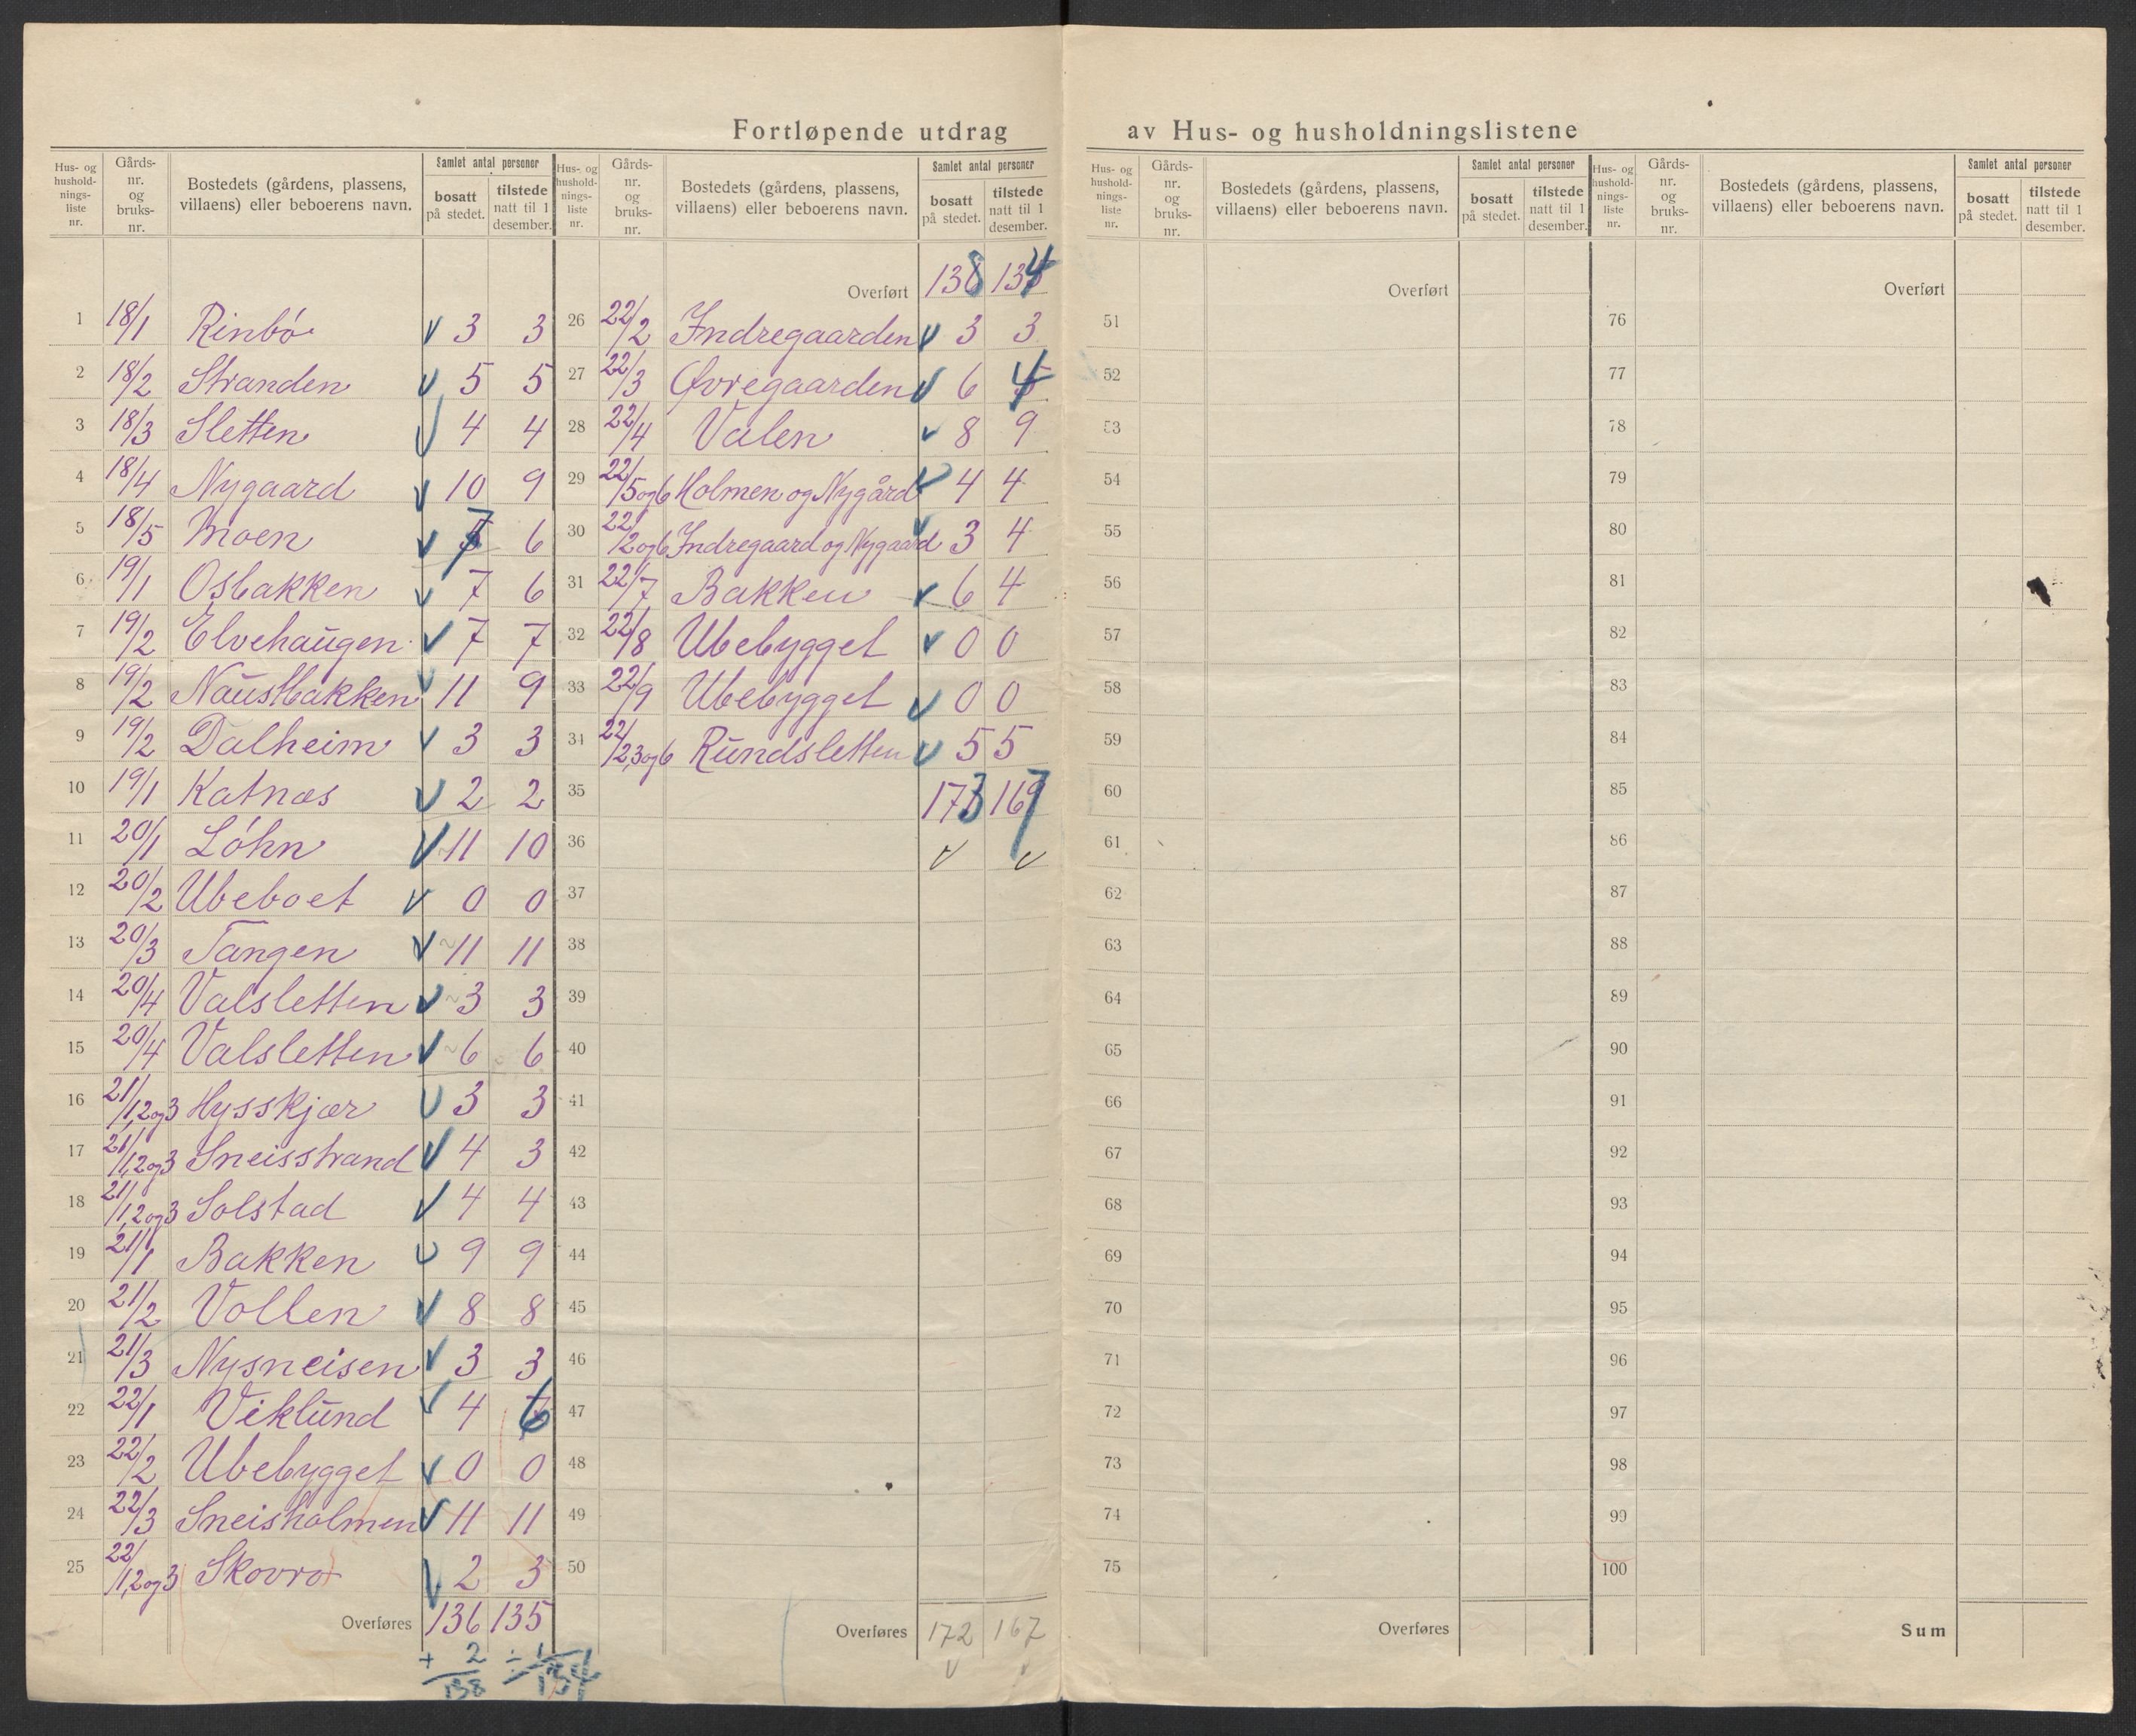 Fortløpende utdrag av Hus- og husholdningslistene
Hus- og husholdnings-liste nr. | Gårds-nr. og bruks-nr. | Bostedets (gårdens, plassens, villaens) eller beboerens navn. | Samlet antal personer | bosatt på stedet. | tilstede natt til 1 desember.
1 18/1 Rinbó 3 3
2 18/2 Stranden 5 5
3 18/3 Sletten 4 4
4 18/4 Nygaard 10 9
5 18/5 Moen 7 6
6 19/1 Osbakken 7 6
7 19/2 Elvehaugen 7 7
8 19/2 Naustbakken 11 9
9 19/2 Dalheim 3 3
10 19/1 Katnæs 2 2
11 20/1 Lóhn 11 10
12 20/2 Ubeboet 0 0
13 20/3 Tangen 11 11
14 20/4 Valsletten 3 3
15 20/4 Valsletten 6 6
16 21/1,2og3 Hysskjær 3 3
17 21/1,2og3 Sneisstrand 4 3
18 21/1,2og3 Solstad 4 4
19 21/1 Bakken 9 9
20 21/2 Vollen 8 8
21 21/3 Nysneisen 3 3
22 22/1 Viklund 4 6
23 22/2 Ubebygget 0 0
24 22/3 Sneisholmen 11 11
25 22/1,2og3 Skovro 2 3
Overføres 136 135
+ 2 ÷ 1
138 134
Hus- og husholdnings-liste nr. | Gårds-nr. og bruks-nr. | Bostedets (gårdens, plassens, villaens) eller beboerens navn. | Samlet antal personer | bosatt på stedet. | tilstede natt til 1 desember.
Overført 138 134
26 22/2 Indregaarden 3 3
27 22/3 Øvregaarden 6 4
28 22/4 Valen 8 9
29 22/5og6 Holmen og Nygård 4 4
30 22/2og6 Indregaard og Nygaard 3 4
31 22/7 Bakken 6 4
32 22/8 Ubebygget 0 0
33 22/9 Ubebygget 0 0
34 22/2,3og6 Rundsletten 5 5
35 173 167
36
37
38
39
40
41
42
43
44
45
46
47
48
49
50
Overføres 172 167
Hus- og husholdnings-liste nr. | Gårds-nr. og bruks-nr. | Bostedets (gårdens, plassens, villaens) eller beboerens navn. | Samlet antal personer | bosatt på stedet. | tilstede natt til 1 desember.
Overført
51
52
53
54
55
56
57
58
59
60
61
62
63
64
65
66
67
68
69
70
71
72
73
74
75
Overføres
Hus- og husholdnings-liste nr. | Gårds-nr. og bruks-nr. | Bostedets (gårdens, plassens, villaens) eller beboerens navn. | Samlet antal personer | bosatt på stedet. | tilstede natt til 1 desember.
Overført
76
77
78
79
80
81
82
83
84
85
86
87
88
89
90
91
92
93
94
95
96
97
98
99
100
Sum